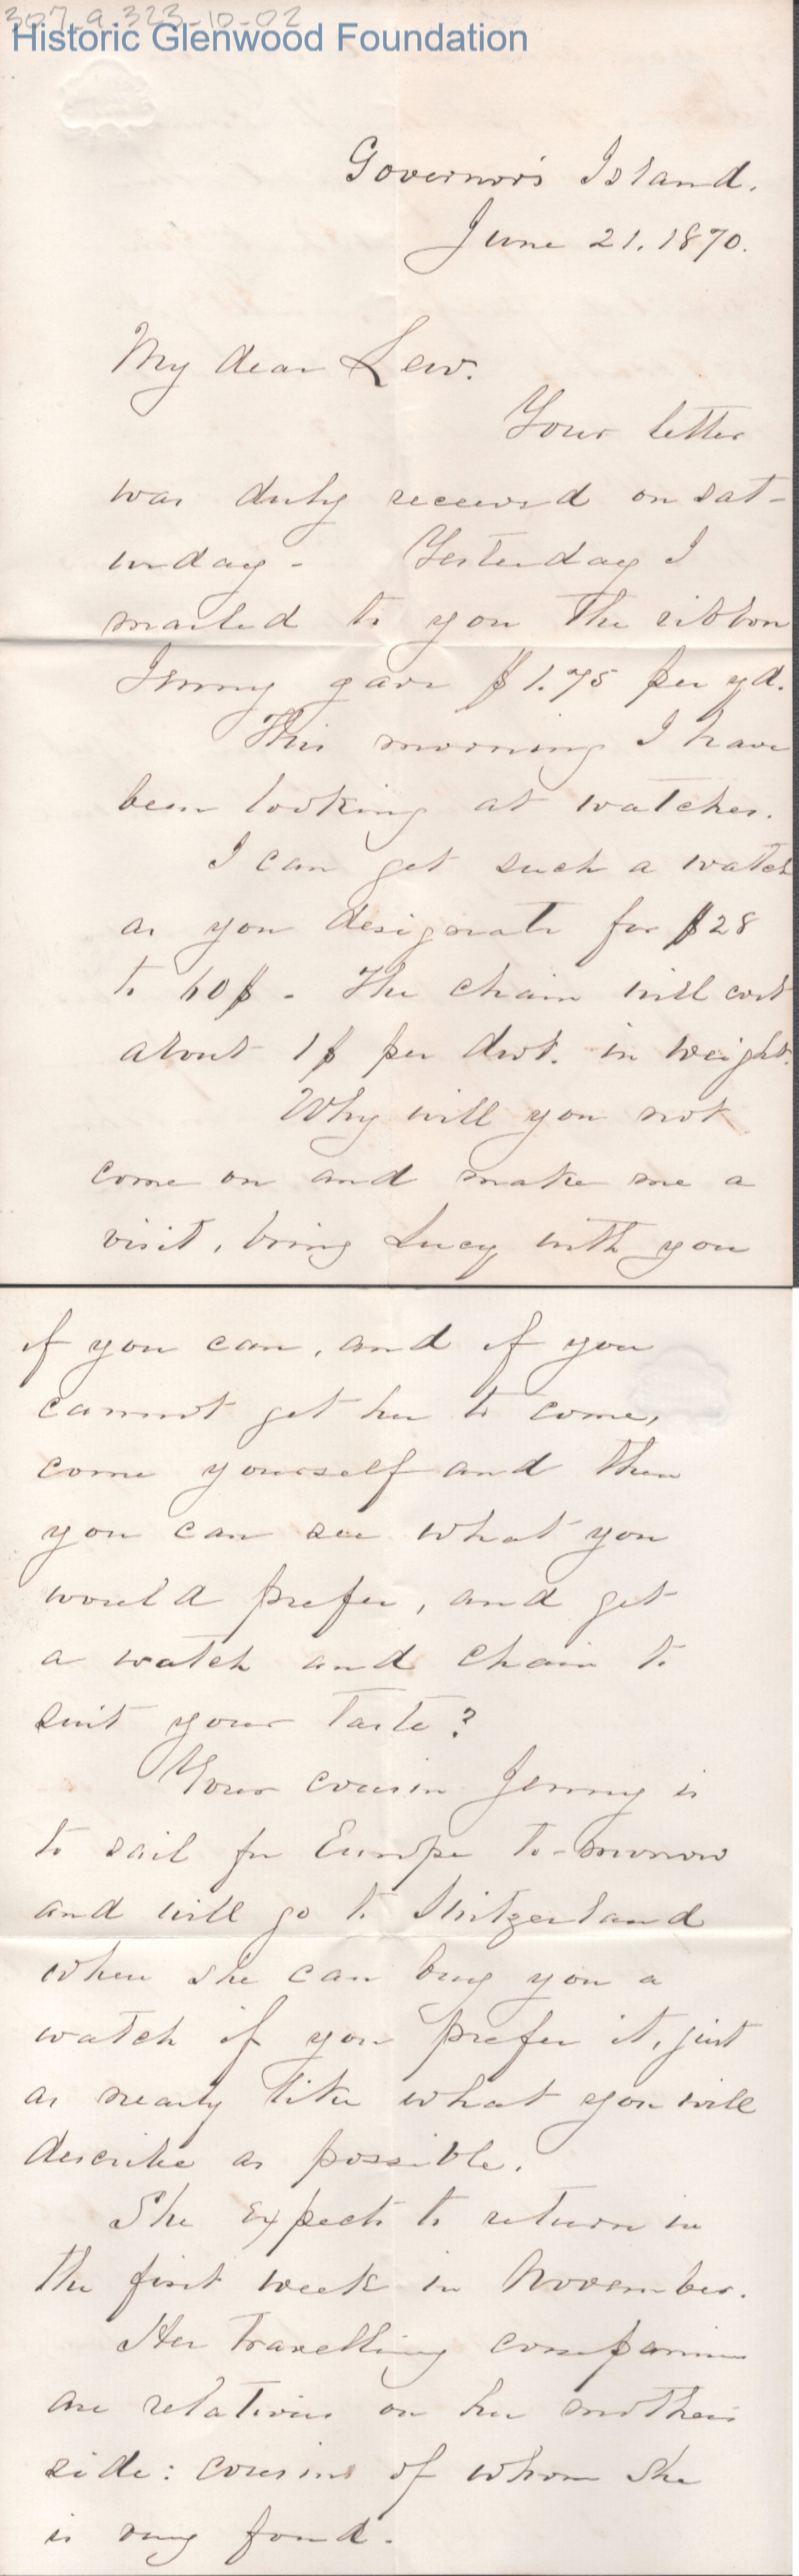 307-9.323-10-02
Historic Glenwood Foundation
Governor's Island.
June 21. 1870.
My dear Lew.
Your letter
was duly received on Sat-
urday - Yesterday I
mailed to you the ribbon
Jenny gave $1.75 per yd.
This morning I have
been looking at watches.
I can get such a watch
as you designate for $28
to 60$ - The chain will cost
about 1$ per dwt. in weight.
Why will you not
come on and make me a
visit, bring Lucy with you
if you can, and if you
cannot get her to come,
come yourself and then
you can see what you
would prefer, and get
a watch and chain to
suit your taste?
Your cousin Jenny is
to sail for Europe to-morrow
and will go to Switzerland
when she can buy you a
watch if you prefer it, just
as nearly like what you will
describe as possible.
She expects to return in
the first week in November.
Her travelling companions
are relatives on her mothers
side: cousins of whom she
is very fond.